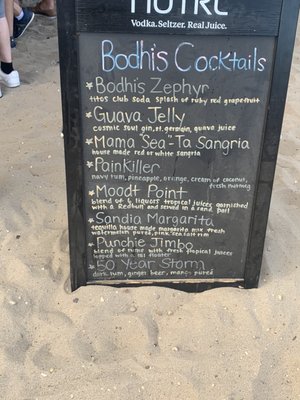 NÜTRL
Vodka. Seltzer. Real Juice.
Bodhi's Cocktails
Bodhi's Zephyr
titos club soda splash of ruby red grapefruit
Guava Jelly
cosmic soul gin, st. germain, guava juice
Mama "Sea"-Ta Sangria
house made red or white sangria
PainKiller
navy rum, pineapple, orange, cream of coconut,
fresh nutmeg
Moodt Point
blend of 6 liquors tropical juices, garnished
with a Redbull and served in a sand pail
Sandia Margarita
tequilla house made margarita mix fresh
watermelon pureé, pink sea salt rim
Punchie Jimbo
blend of rums with fresh tropical juices
topped with a 151 floater
50 Year Storm
dark rum, ginger beer, mango pureé